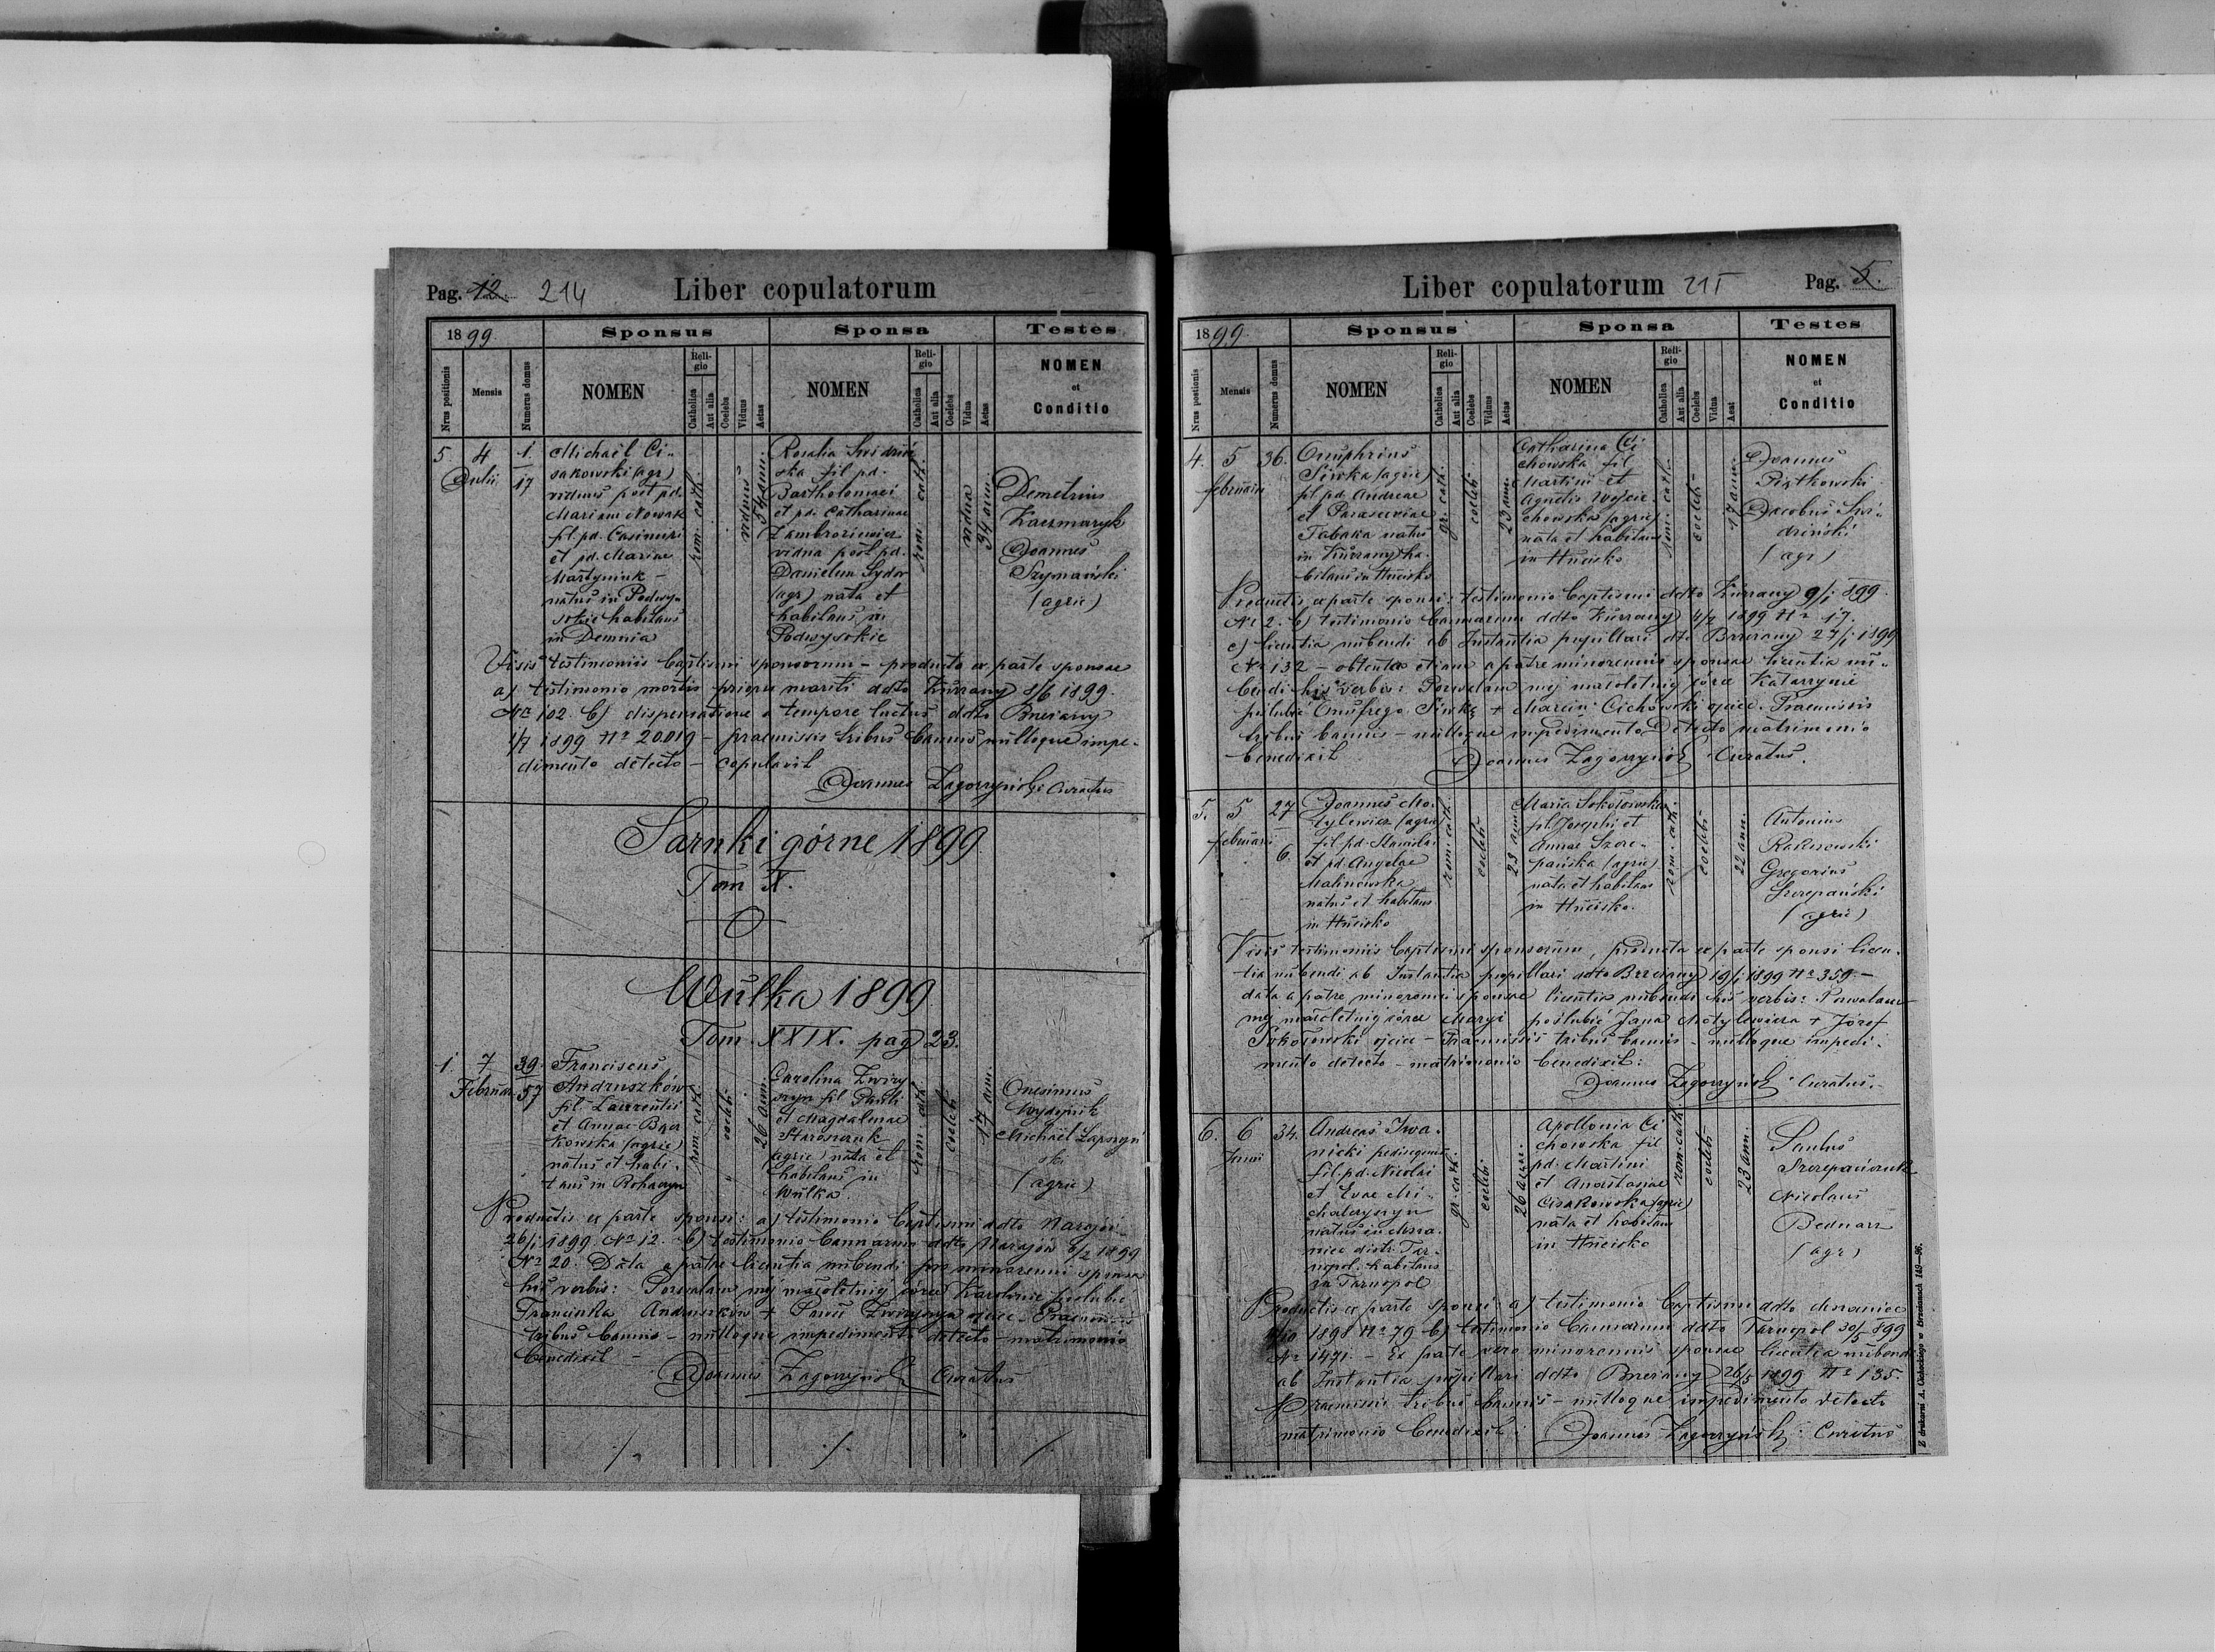 Pag. 12. 214 Liber copulatorum
1899. Sponsus Sponsa Testes
Nrus positionis Mensis Numerus domus NOMEN Religio Catholica Aut alia Coelebs Viduus Aetas NOMEN Religio Catholica Aut alia Coelebs Vidua Aetas NOMEN et Conditio
5. 4 Julii 1. 17
Michaël Ci-
sakowski (agr)
viduus post pd.
Mariam Nowak
fil. pd. Casimiri
et pd. Mariae
Martyniuk -
natus in Podwy-
sokie habitans
in Demnia
rom. cath.
viduus
54 ann.
Rosalia Swidziń
ska fil. pd.
Bartholomaei
et pd. Catharinae
Zambroziewicz
vidua post pd.
Danielem Sydor
(agr) nata et
habitans in
Podwysokie
rom. cath.
vidua
34 ann.
Demetrius
Kaczmaryk
Joannes
Szymański
(agric)
Visis testimoniis baptismi sponsorum - producta ex parte sponsae
a) testimonio mortis prioris mariti ddto Kurzany 8/6 1899.
No 102. b) dispensatione a tempore luctus ddto Brzeżany
1/7 1899 No 20019 - praemissis tribus bannis nulloque impe-
dimento detecto - copulavit
Joannes Zagorzyński Curatus
Sarnki górne 1899
Tom X.
Wulka 1899
Tom. XXIX. pag 23.
1 7 Februar 39. 57
Franciscus
Andruszków
fil. Laurentii
et Annae
kowska (agric)
natus et habi-
tans in Rohaczyn
rom. cath.
coelebs
26 ann.
Carolina Zwiry
szyn fil Pauli
et Magdalenae
Starosczuk
(agric) nata et
habitans in
Wulka.
rom. cath
coelebs
17 ann.
Onesimus
Wydrynik
Michaël Lapszyń
ski
(agric)
Productis ex parte sponsi: a) testimonio baptismi ddto Narajów
26/1 1899 No 12. b) testimonio bannarum ddto Narajów 6/2 1899
No 20. Data a patre licentia nubendi pro minorenni sponsa
his verbis: Pozwalam mej małoletniej córce Karolinie poślubić
Franciszka Andruszków + Paweł Zwiryszyn ojciec. Praemissis
tribus bannis - nulloque impedimento detecto - matrimonio
benedixit -
Joannes Zagorzyński Curatus
Liber copulatorum 215 Pag. 5.
1899. Sponsus Sponsa Testes
Nrus positionis Mensis Numerus domus NOMEN Religio Catholica Aut alia Coelebs Viduus Aetas NOMEN Religio Catholica Aut alia Coelebs Vidua Aeat NOMEN et Conditio
4. 5 februarii 36.
Onuphrius
Siwka (agric)
fil pd. Andreae
et Parasceviae
Tabaka natus
in Kurzany ha-
bitans in Hucisko
gr. cath.
coelebs
23 ann.
Catharina Ci
chowska fil
Martini et
Agnetis Wojcie-
chowska (agric)
nata et habitans
in Hucisko
rom. cath.
coelebs
17 ann.
Joannes
Piątkowski
Jacobus Swi-
dziński
(agr)
Productis ex parte sponsi: testimonio baptismi ddto Kurzany 9/1 899.
No 2. b) testimonio bannarum ddto Kurzany 4/2 1899 No 17.
c) licentia nubendi ab Instantia pupillari dto Brzeżany 27/1 1899
No 132 - obtenta etiam a patre minorennis sponsae licentia nu-
bendi his verbis: Pozwalam mej małoletniej córce Katarzynie
poślubić Onufrego Siwkę + Marcin Cichowski ojciec. Praemissis
tribus bannis - nulloque impedimento detecto matrimonio
benedixit Joannes Zagorzyński Curatus.
5. 5 februarii 27 6.
Joannes Mo-
tylewicz (agric)
fil pd. Stanislai
et pd. Angelae
Malinowska
natus et habitans
in Hucisko
rom. cath.
coelebs
23 ann
Maria Sokołowska
fil. Josephi et
Annae Szcze-
pańska (agric)
nata et habitans
in Hucisko.
rom. cath.
coelebs
22 ann.
Antonius
Rakuszowski
Gregorius
Szczepański
(agric)
Visis testimoniis baptismi sponsorum, producta ex parte sponsi licen-
tia nubendi ab Instantia pupillari ddto Brzeżany 19/1 1899 No 359. -
data a patre minorennis sponsae licentia nubendi his verbis: Pozwalam
mej małoletniej córce Maryi poślubić Jana Motylewicza + Józef
Sokołowski ojciec - Praemissis tribus bannis - nulloque impedi-
mento detecto - matrimonio benedixit:
Joannes Zagorzyński Curatus. -
6. 6 Junii 34.
Andreas Iwa-
nicki pedisequus
fil. pd. Nicolai
et Evae Mi-
chalczyszyn
natus in Mszа-
niec distr. Tar-
nopol. habitans
in Tarnopol
gr. cath.
coelebs
26 ann.
Apollonia Ci
chowska fil
pd. Martini
et Anastasiae
Cisakowska (agric)
nata et habitans
in Hucisko
rom. cath.
coelebs
23 ann.
Paulus
Szczepańczuk
Nicolaus
Bednarz
(agr)
Productis ex parte sponsi: a) testimonio baptismi ddto Mszaniec
1898 No 79 b) testimonio bannarum ddto Tarnopol 30/5 899
No 1471. - Ex parte vero minorennis sponsae licentia nubendi
ab Instantia pupillari ddto Brzeżany 26/5 1899 No 135.
Praemissis tribus bannis - nulloque impedimento detecto
matrimonio benedixit: Joannes Zagorzyński Curatus
Z drukarni A. Cichockiego w Brzeżanach 149-96.